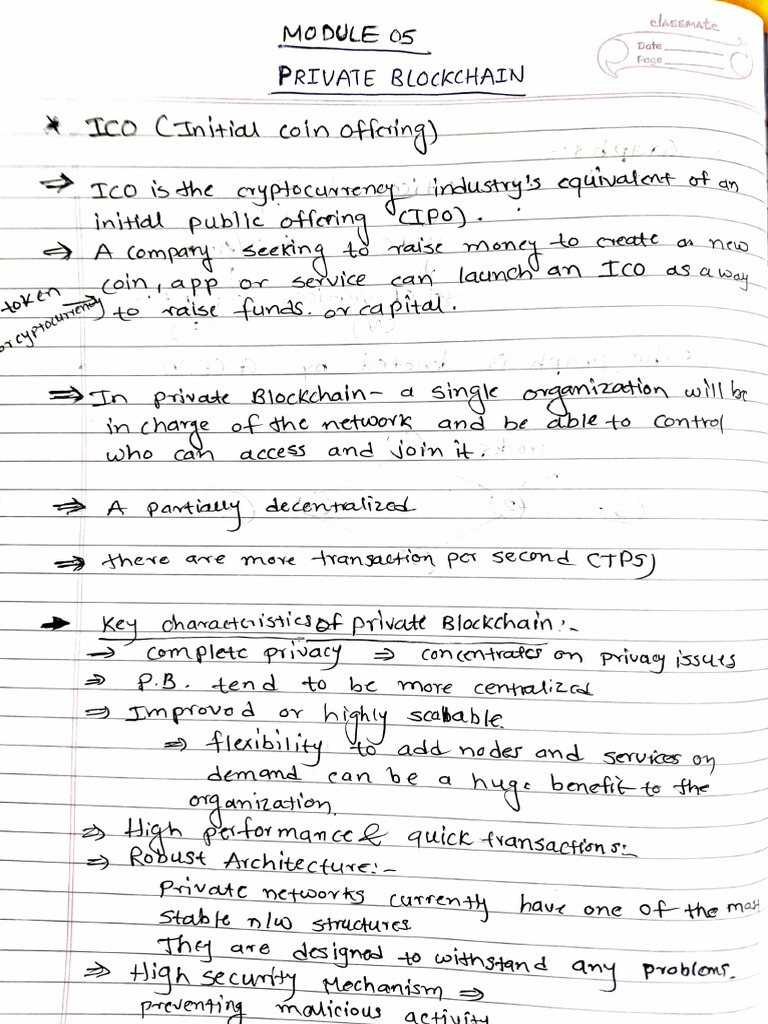 classmate
Date
Page
MODULE 05
PRIVATE BLOCKCHAIN
* ICO (Initial coin offering)
⇒ ICO is the cryptocurrency industry's equivalent of an
initial public offering (IPO).
⇒ A company seeking to raise money to create a new
coin, app or service can launch an ICO as a way
token →
or cryptocurrency
to raise funds. or capital.
⇒ In private Blockchain - a single organization will be
in charge of the network and be able to control
who can access and join it.
⇒ A partially decentralized
⇒ there are more transaction per second (TPS)
→ Key characteristics of private Blockchain:-
→ complete privacy ⇒ concentrates on privacy issues
⇒ P.B. tend to be more centralized
⇒ Improved or highly scalable
⇒ flexibility to add nodes and services on
demand can be a huge benefit to the
organization.
⇒ High performance & quick transactions:-
⇒ Robust Architecture:-
Private networks currently have one of the most
stable n/w structures
They are designed to withstand any problems.
⇒ High security Mechanism ⇒
preventing malicious activity